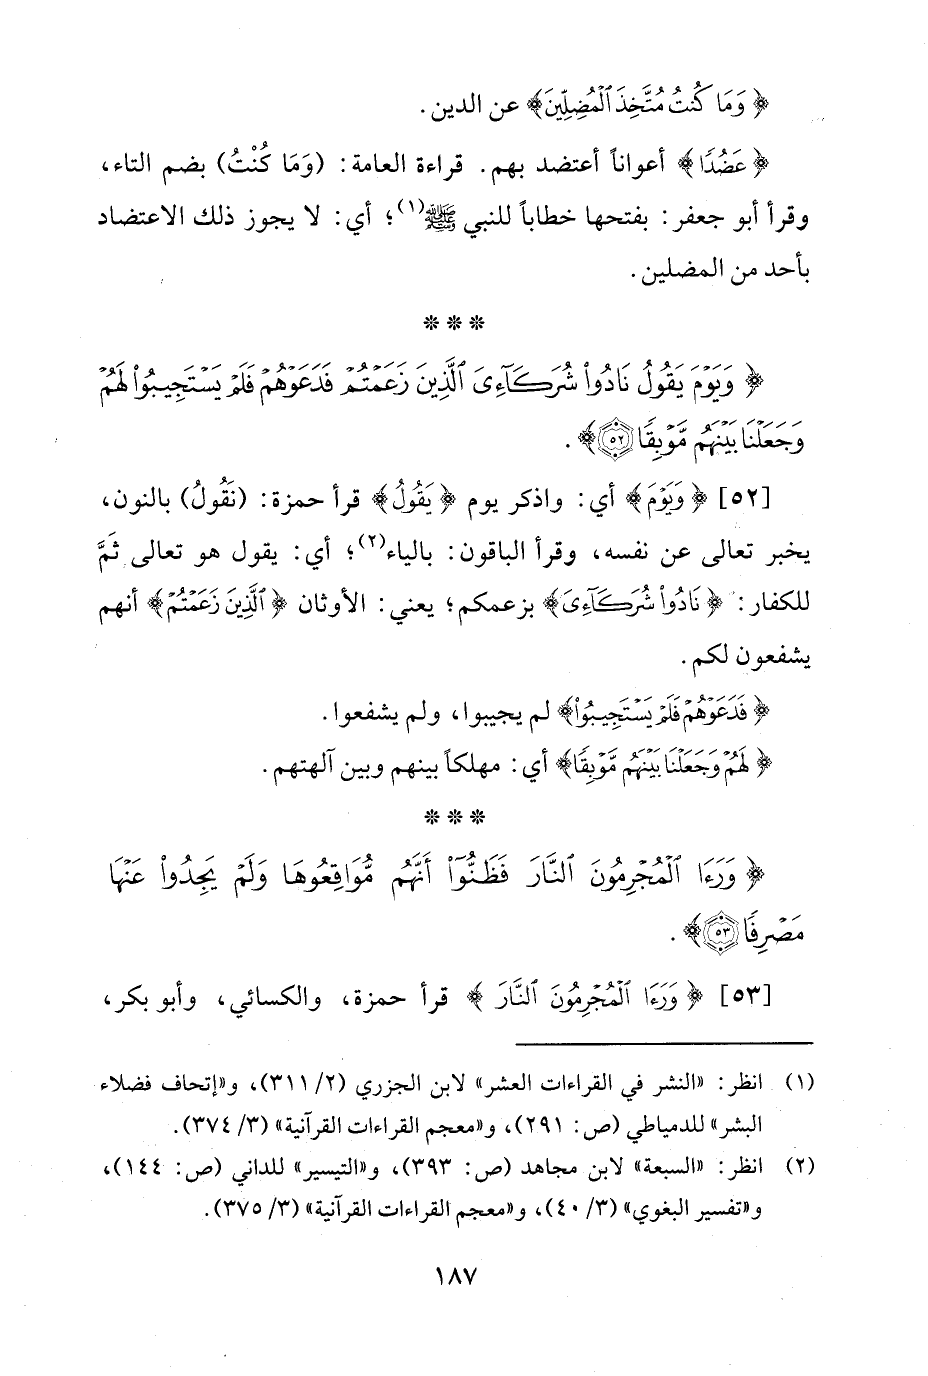 ﴿ وَمَا كُنتُ مُتَّخِذَ ٱلْمُضِلِّينَ﴾ عن الدين.
﴿ عَضُدًا﴾ أعواناً أعتضد بهم. قراءة العامة: (وَمَا كُنْتُ) بضم التاء،
وقرأ أبو جعفر: بفتحها خطاباً للنبي ﷺ(١)؛ أي: لا يجوز ذلك الاعتضاد
بأحد من المضلين.
* * *
﴿ وَيَوْمَ يَقُولُ نَادُوا۟ شُرَكَآءِىَ ٱلَّذِينَ زَعَمْتُمْ فَدَعَوْهُمْ فَلَمْ يَسْتَجِيبُوا۟ لَهُمْ
وَجَعَلْنَا بَيْنَهُم مَّوْبِقًا ٥٢﴾.
[٥٢] ﴿ وَيَوْمَ﴾ أي: واذكر يوم ﴿ يَقُولُ﴾ قرأ حمزة: (نَقُولُ) بالنون،
يخبر تعالى عن نفسه، وقرأ الباقون: بالياء(٢)؛ أي: يقول هو تعالى ثَمَّ
للكفار: ﴿ نَادُوا۟ شُرَكَآءِىَ﴾ بزعمكم؛ يعني: الأوثان ﴿ ٱلَّذِينَ زَعَمْتُمْ﴾ أنهم
يشفعون لكم.
﴿ فَدَعَوْهُمْ فَلَمْ يَسْتَجِيبُوا۟﴾ لم يجيبوا، ولم يشفعوا.
﴿ لَهُمْ وَجَعَلْنَا بَيْنَهُم مَّوْبِقًا﴾ أي: مهلكاً بينهم وبين آلهتهم.
* * *
﴿ وَرَءَا ٱلْمُجْرِمُونَ ٱلنَّارَ فَظَنُّوٓا۟ أَنَّهُم مُّوَاقِعُوهَا وَلَمْ يَجِدُوا۟ عَنْهَا
مَصْرِفًا ٥٣﴾.
[٥٣] ﴿ وَرَءَا ٱلْمُجْرِمُونَ ٱلنَّارَ ﴾ قرأ حمزة، والكسائي، وأبو بكر،
(١) انظر: «النشر في القراءات العشر» لابن الجزري (٢/ ٣١١)، و«إتحاف فضلاء
البشر» للدمياطي (ص: ٢٩١)، و«معجم القراءات القرآنية» (٣/ ٣٧٤).
(٢) انظر: «السبعة» لابن مجاهد (ص: ٣٩٣)، و«التيسير» للداني (ص: ١٤٤)،
و«تفسير البغوي» (٣/ ٤٠)، و«معجم القراءات القرآنية» (٣/ ٣٧٥).
١٨٧